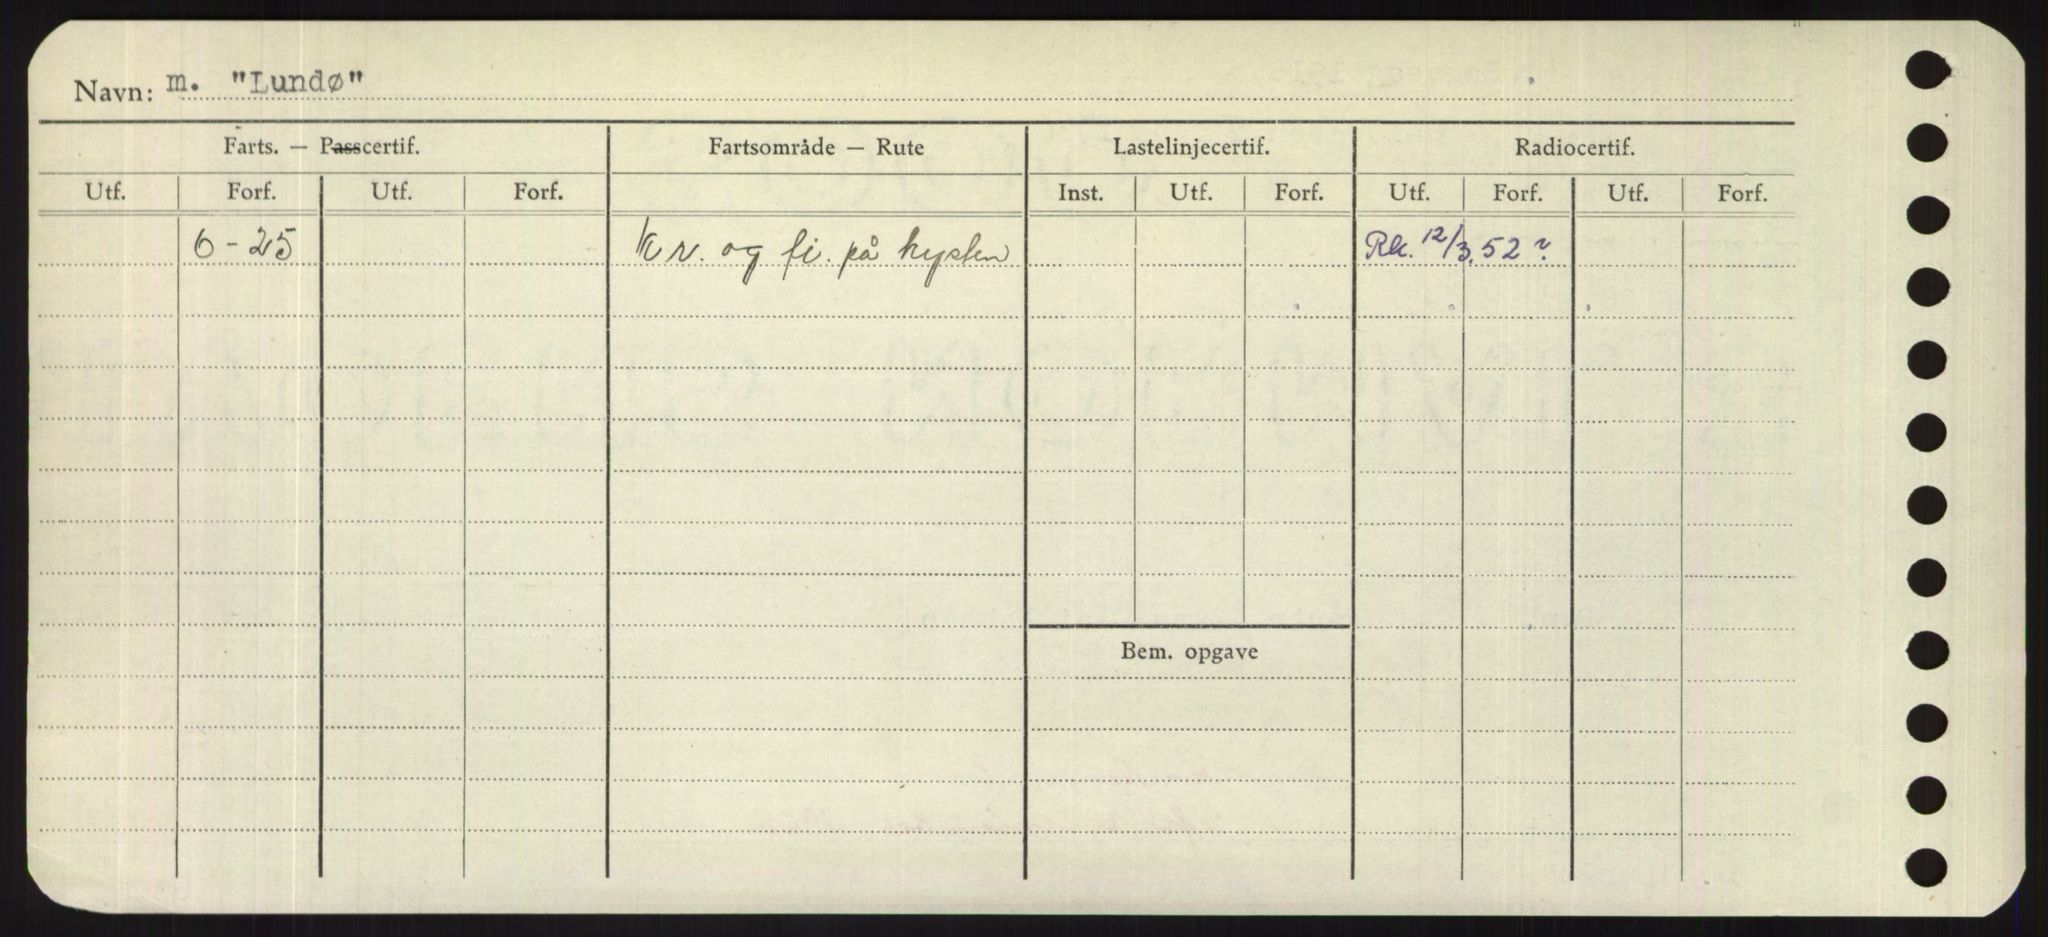 Navn: m. "Lundø"
Farts. — Passcertif. Fartsområde — Rute Lastelinjecertif. Radiocertif.
Utf. Forf. Utf. Forf. Inst. Utf. Forf. Utf. Forf. Utf. Forf.
6-25 kv. og fi. på kysten Rk. 12/3.52 ?
Bem. opgave